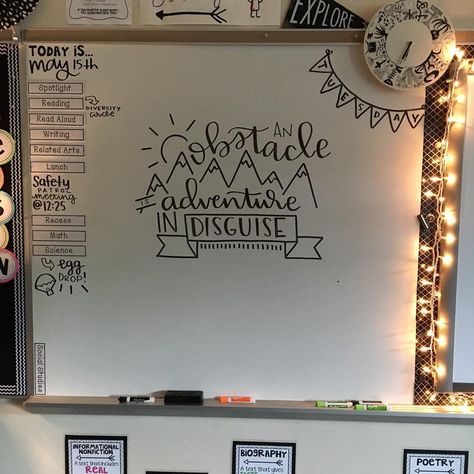 EXPLORE
TODAY IS...
may 15th
TUESDAY
Spotlight
Reading
DIVERSITY
circle
Read Aloud
Writing
Related Arts
Lunch
Safety
PATROL
meeting
@12:25
Recess
Math
Science
egg
DROP!
Social Studies
AN
obstacle
is
adventure
IN
DISGUISE
INFORMATIONAL
NONFICTION
A text that includes
REAL
BIOGRAPHY
A text that gives
POETRY